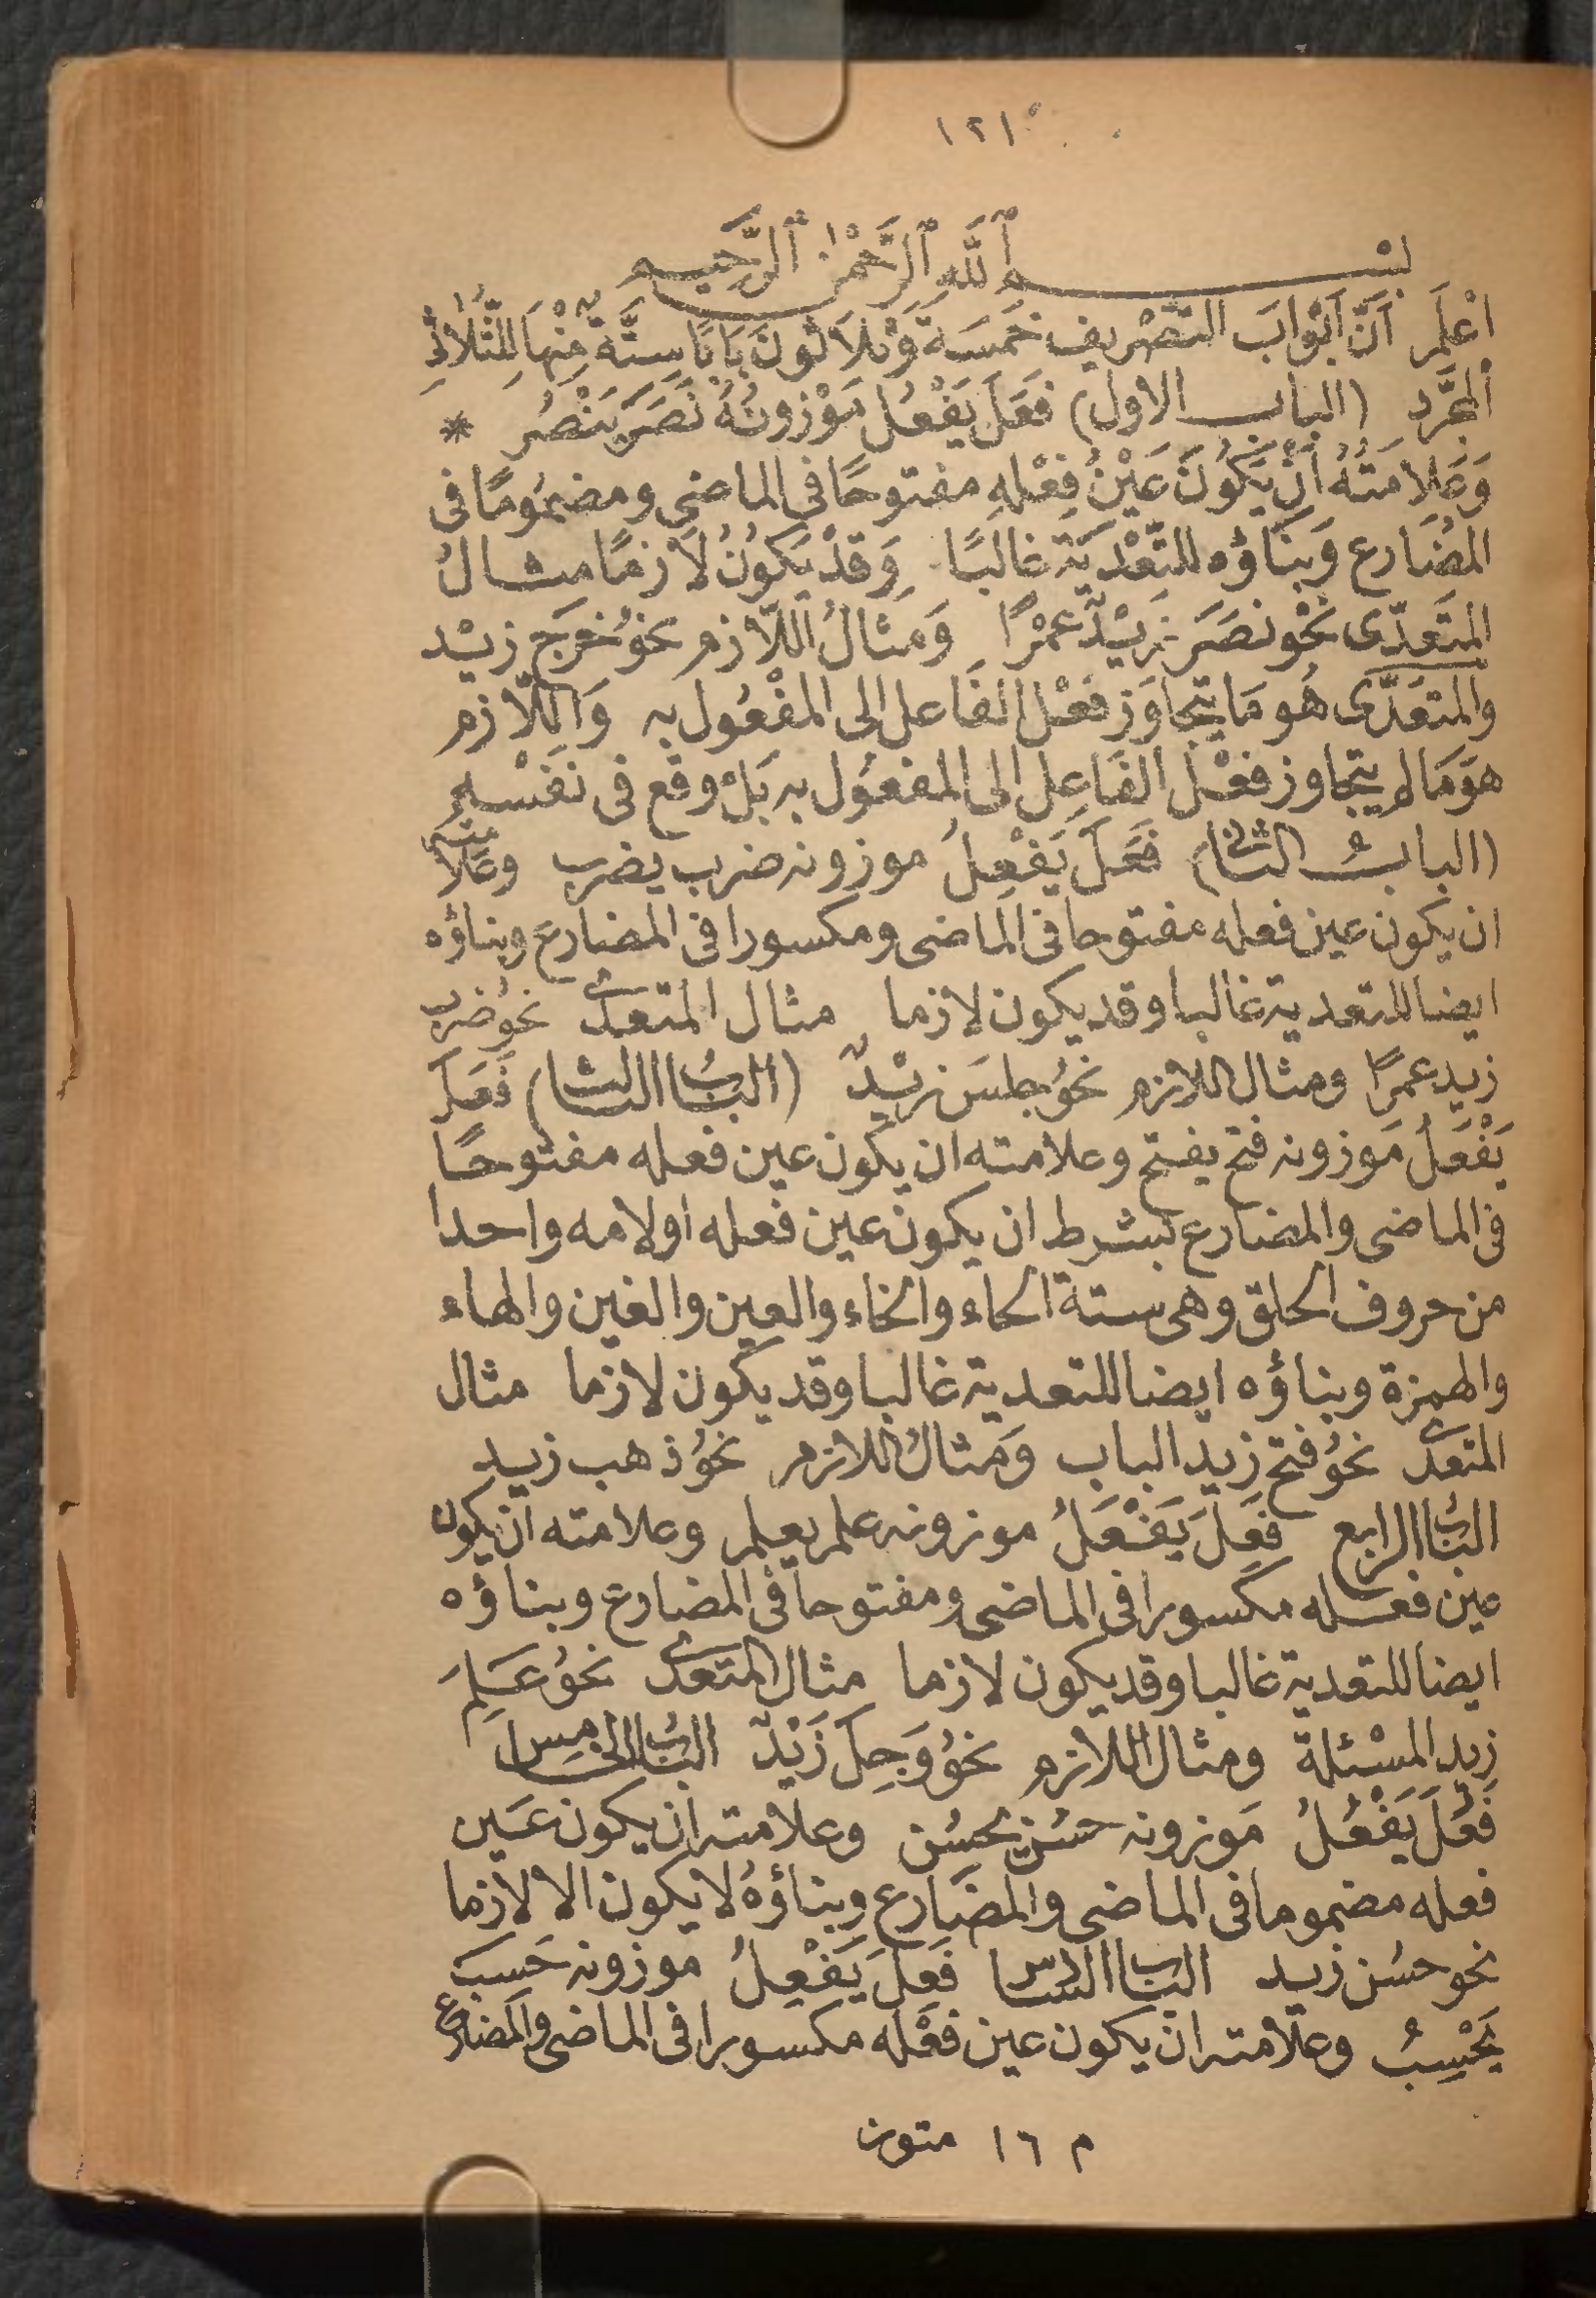 ١٢١
بِسْمِ اللّٰهِ الرَّحْمٰنِ الرَّحِيمِ
اعْلَمْ اَنَّ اَبْوَابَ التَّصْرِيفِ خَمْسَةٌ وَثَلَاثُونَ بَابًا سِتَّةٌ مِنْهَا لِلثُّلَاثِيِّ
المُجَرَّدِ (الباب الاول) فَعَلَ يَفْعُلُ مَوْزُونُهُ نَصَرَ يَنْصُرُ *
وَعَلَامَتُهُ اَنْ يَكُونَ عَيْنُ فِعْلِهِ مفتوحًا فى الماضى ومضمُومًا فى
المُضَارع وَبنَاؤه للتَّعْدِيَة غالبًا وَقَدْ يَكُونُ لَازمًا مثـالُ
المتَعدّى نَحْو نصَرَ زَيْدٌ عمْرًا وَمثَالُ اللّازم نحوُ خرَج زيْد
والمتعَدّى هُو مَا يتجاوَز فعْل الفَاعل الى المفْعُول به وَاللّازم
هوَ مَا لم يتجاوز فعْل الفَاعِل الى المفعُول به بَلْ وقع فى نفْسـه
(البابُ الثانى) فَعَلَ يَفْعِلُ موزونه ضرب يضرب وعَلامته
ان يكون عين فعله مفتوحا فى الماضى ومكسورا فى المضارع وبناؤه
ايضا للتعدية غالبا وقد يكون لازما مثال المتعدى نحوُ ضرب
زيد عمرًا ومثال اللازم نحوُ جلسَ زيْدٌ (البابُ الثالث) فَعَلَ
يَفْعَلُ مَوزونه فتح يفتح وعلامته ان يكون عين فعله مفتوحـًا
فى الماضى والمضارع بشرط ان يكون عين فعله اولامه واحدا
من حروف الحلق وهى ستة الحاء والخاء والعين والغين والهاء
والهمزة وبناؤه ايضا للتعدية غالبا وقد يكون لازما مثال
المتعدى نحوُ فتح زيد الباب وَمثالُ اللازم نحوُ ذهب زيد
البابُ الرابع فَعِلَ يَفْعَلُ موزونه علم يعلم وعلامته ان يكون
عين فعله مكسورا فى الماضى ومفتوحا فى المضارع وبناؤه
ايضا للتعدية غالبا وقد يكون لازما مثال المتعدى نحوُ عَـلِمَ
زيد المسْئلة ومثال اللازم نحوُ وَجِلَ زَيْدٌ البابُ الخامس
فَعُلَ يَفْعُلُ مَوزونه حسُن يحسُن وعلامته ان يكون عَين
فعله مضموما فى الماضى والمضَارع وبناؤهُ لا يكون الا لازما
نحو حسُن زيد الباب السادس فَعِلَ يَفْعِلُ موزونه حَسِبَ
يَحْسِبُ وعلامته ان يكون عين فعْله مكسورا فى الماضى والمضارع
م ١٦ متون